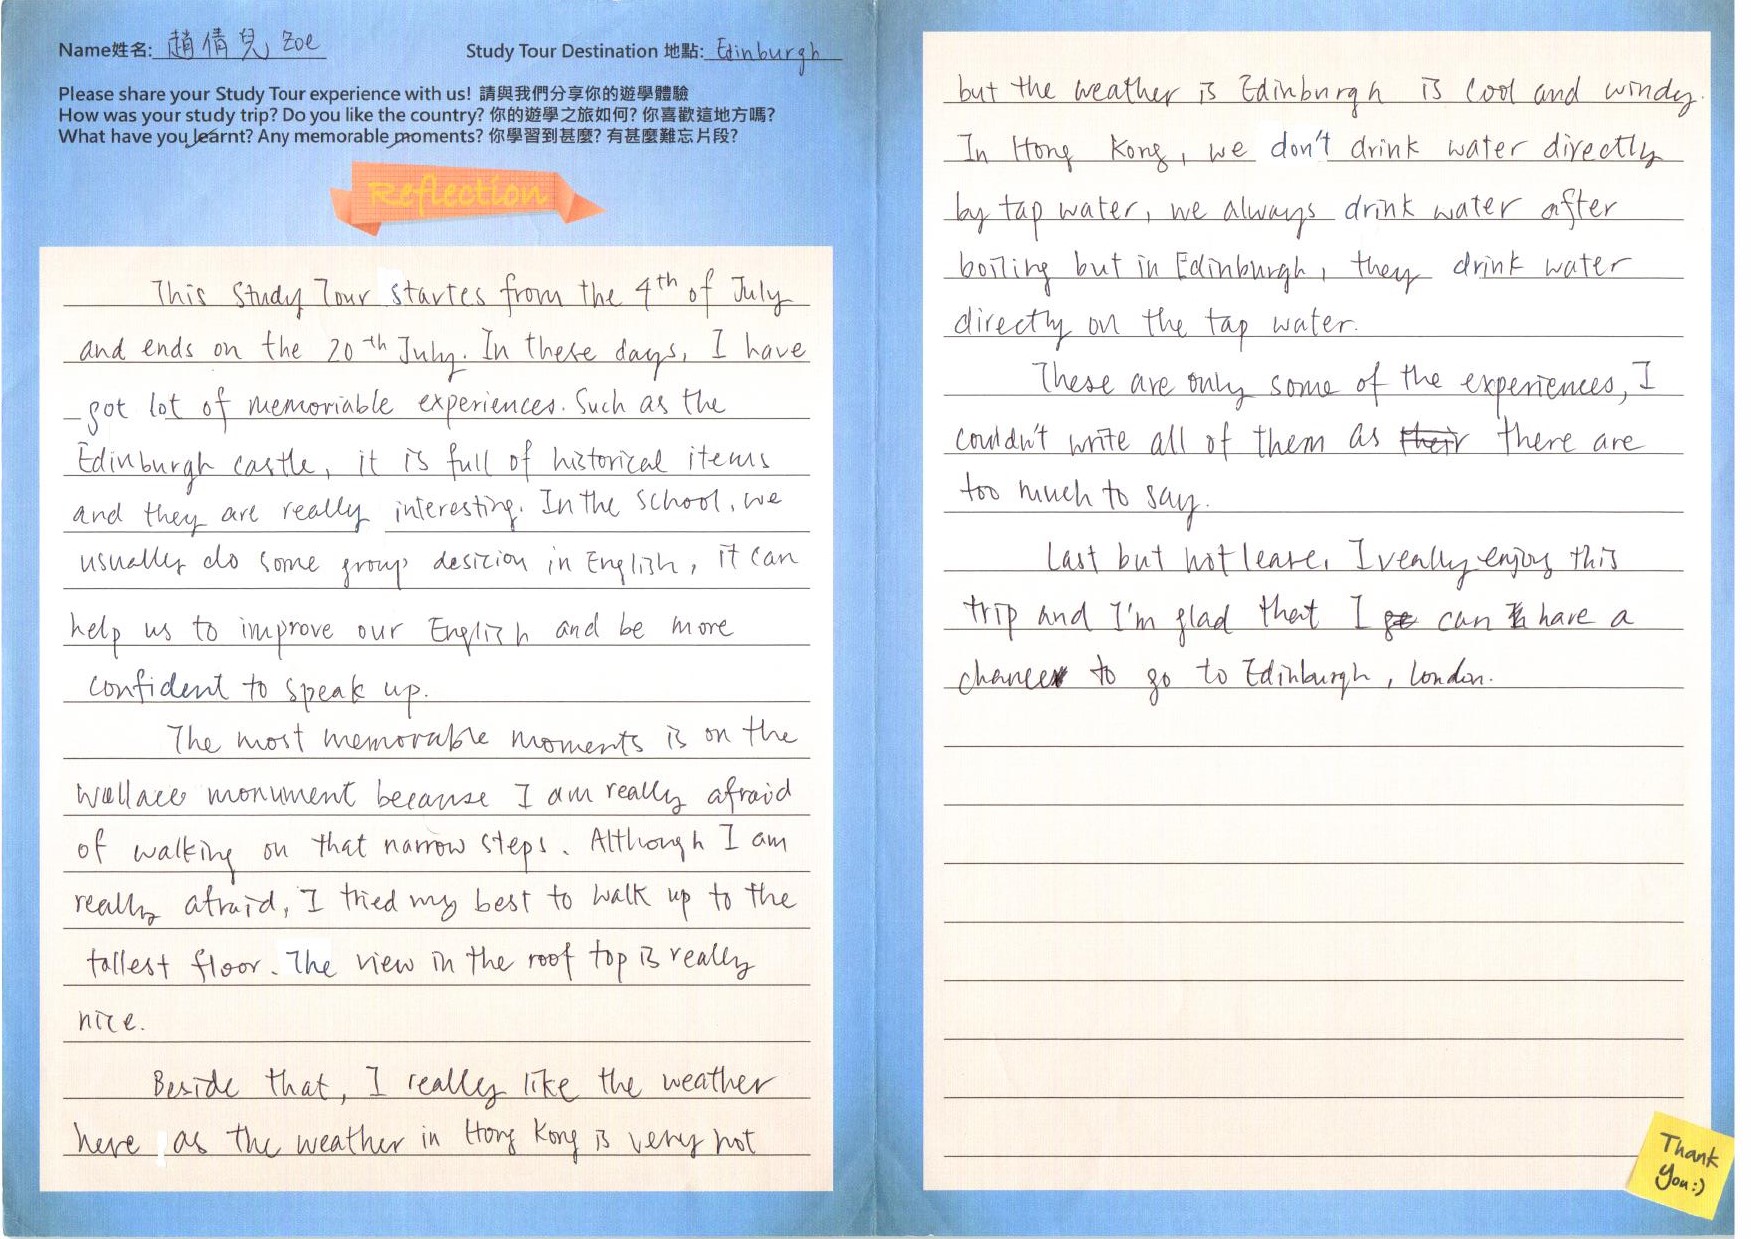 Name姓名: 趙倩兒 Zoe
Study Tour Destination 地點: Edinburgh
Please share your Study Tour experience with us! 請與我們分享你的遊學體驗
How was your study trip? Do you like the country? 你的遊學之旅如何? 你喜歡這地方嗎?
What have you learnt? Any memorable moments? 你學習到甚麼? 有甚麼難忘片段?
Reflection
This Study Tour startes from the 4th of July
and ends on the 20th July. In these days, I have
got lot of memoriable experiences. Such as the
Edinburgh castle, it is full of historical items
and they are really interesting. In the school, we
usually do some group desicion in English, it can
help us to improve our English and be more
confident to speak up.
The most memorable moments is on the
Wallace monument because I am really afraid
of walking on that narrow steps. Although I am
really afraid, I tried my best to walk up to the
tallest floor. The view in the roof top is really
nice.
Beside that, I really like the weather
here, as the weather in Hong Kong is very hot
but the weather is Edinburgh is cool and windy.
In Hong Kong, we don't drink water directly
by tap water, we always drink water after
boiling but in Edinburgh, they drink water
directly on the tap water.
These are only some of the experiences, I
couldn't write all of them as their there are
too much to say.
Last but not lease, I really enjoy this
trip and I'm glad that I can have a
chance to go to Edinburgh, London.
Thank
You:)